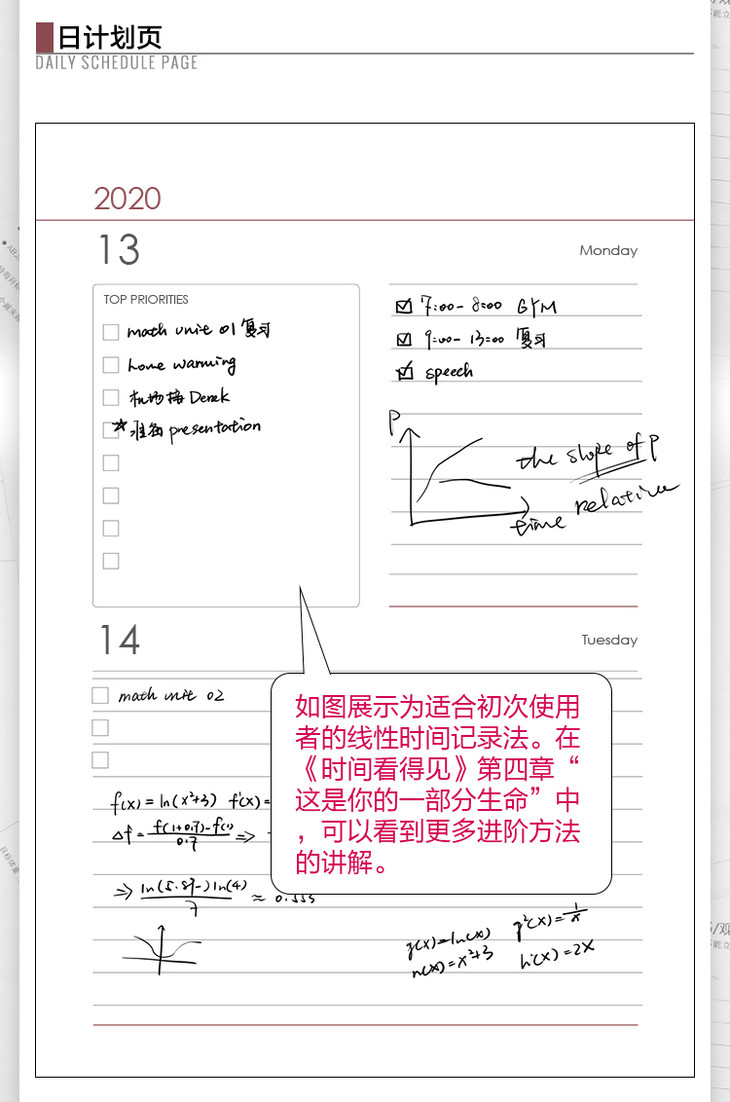 日计划页
DAILY SCHEDULE PAGE
2020
13
Monday
TOP PRIORITIES
math unit 01 复习
home warming
机场接 Derek
准备 presentation
7:00- 8:00 GYM
9:00- 13:00 复习
speech
P
the slope of P
relative
time
14
Tuesday
math unit 02
如图展示为适合初次使用
者的线性时间记录法。在
《时间看得见》第四章“
这是你的一部分生命”中
，可以看到更多进阶方法
的讲解。
f(x) = ln(x²+3) f'(x)=
Δf = f(1+0.7)-f(1) / 0.7 =>
g(x)=ln(x)
h(x)=x²+3
h'(x)=2x